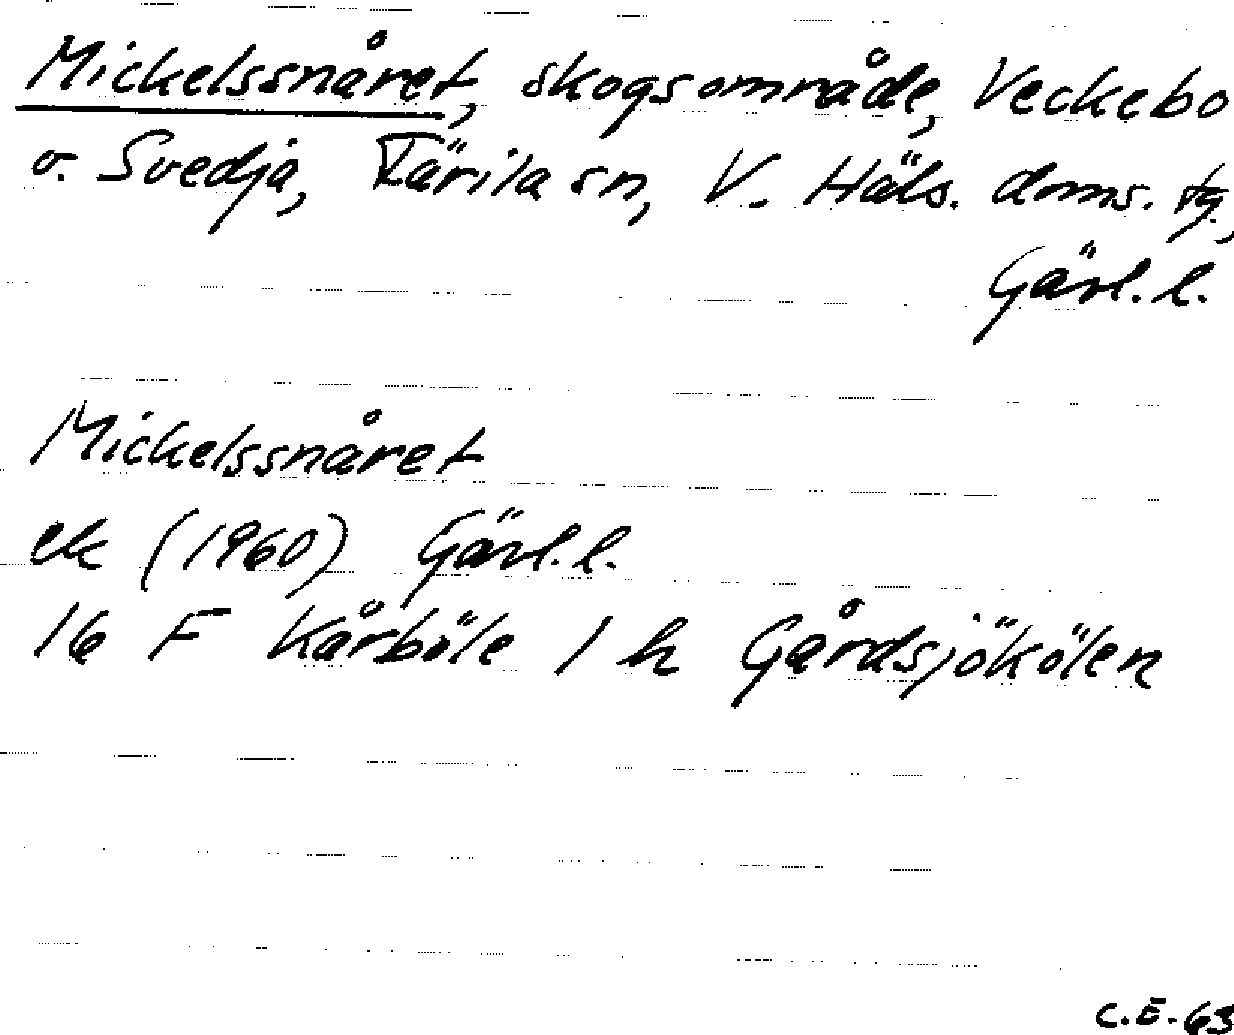 Mickelssnåret, skogsområde, Veckebo
o. Svedja, Färila sn, V. Häls. doms. tg.,
Gävl. l.
Mickelssnåret
ek (1960) Gävl. l.
16 F Kårböle 1 h Gårdsjökölen
C.E. 63